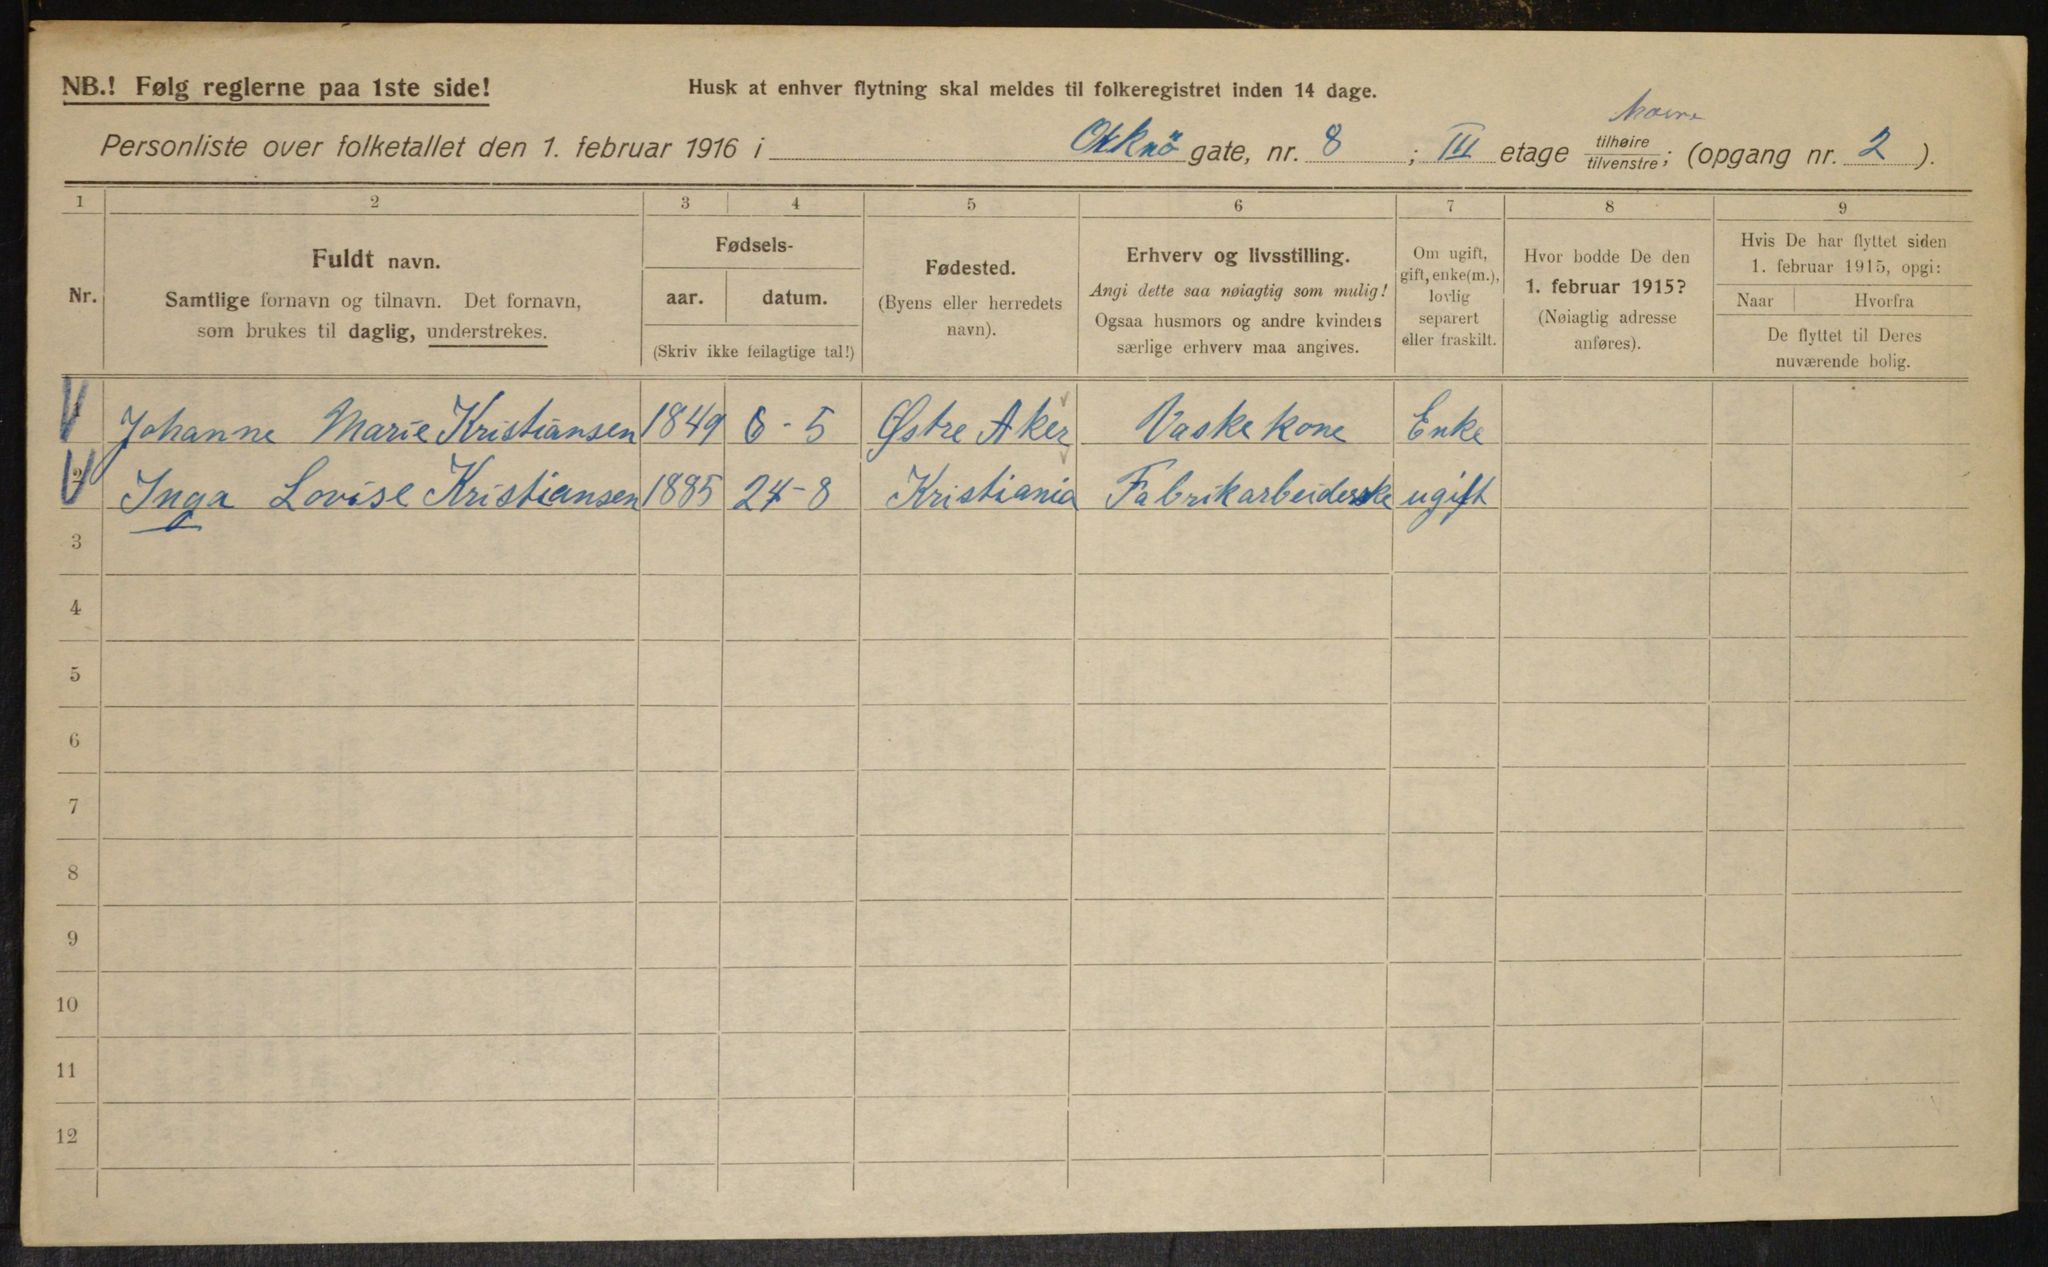 NB.! Følg reglerne paa 1ste side!
Husk at enhver flytning skal meldes til folkeregistret inden 14 dage.
Personliste over folketallet den 1. februar 1916 i Orknö gate, nr. 8 ; III etage tilhøire / tilvenstre; (opgang nr. 2 ).
1 2 3 4 5 6 7 8 9
Nr.
Fuldt navn.
Samtlige fornavn og tilnavn. Det fornavn,
som brukes til daglig, understrekes.
Fødsels-
aar. datum.
(Skriv ikke feilagtige tal!)
Fødested.
(Byens eller herredets
navn).
Erhverv og livsstilling.
Angi dette saa nøiagtig som mulig!
Ogsaa husmors og andre kvinders
særlige erhverv maa angives.
Om ugift,
gift, enke(m.),
lovlig
separert
eller fraskilt.
Hvor bodde De den
1. februar 1915?
(Nøiagtig adresse
anføres).
Hvis De har flyttet siden
1. februar 1915, opgi:
Naar Hvorfra
De flyttet til Deres
nuværende bolig.
Johanne Marie Kristiansen 1849 6-5 Østre Aker Vaskekone Enke
2 Inga Lovise Kristiansen 1885 24-8 Kristiania Fabrikarbeiderske ugift
3
4
5
6
7
8
9
10
11
12